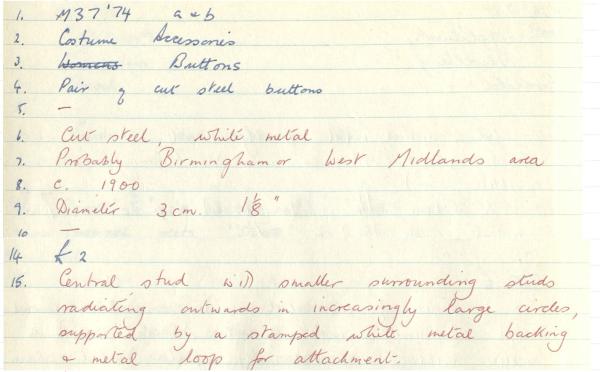 1. M37'74 a & b
2. Costume Accessories
3. Womens Buttons
4. Pair of cut steel buttons
5. —
6. Cut steel, white metal
7. Probably Birmingham or West Midlands area
8. c. 1900
9. Diameter 3cm. 1 1/8"
10 —
14 £2
15. Central stud will smaller surrounding studs
radiating outwards in increasingly large circles,
supported by a stamped white metal backing
& metal loop for attachment.